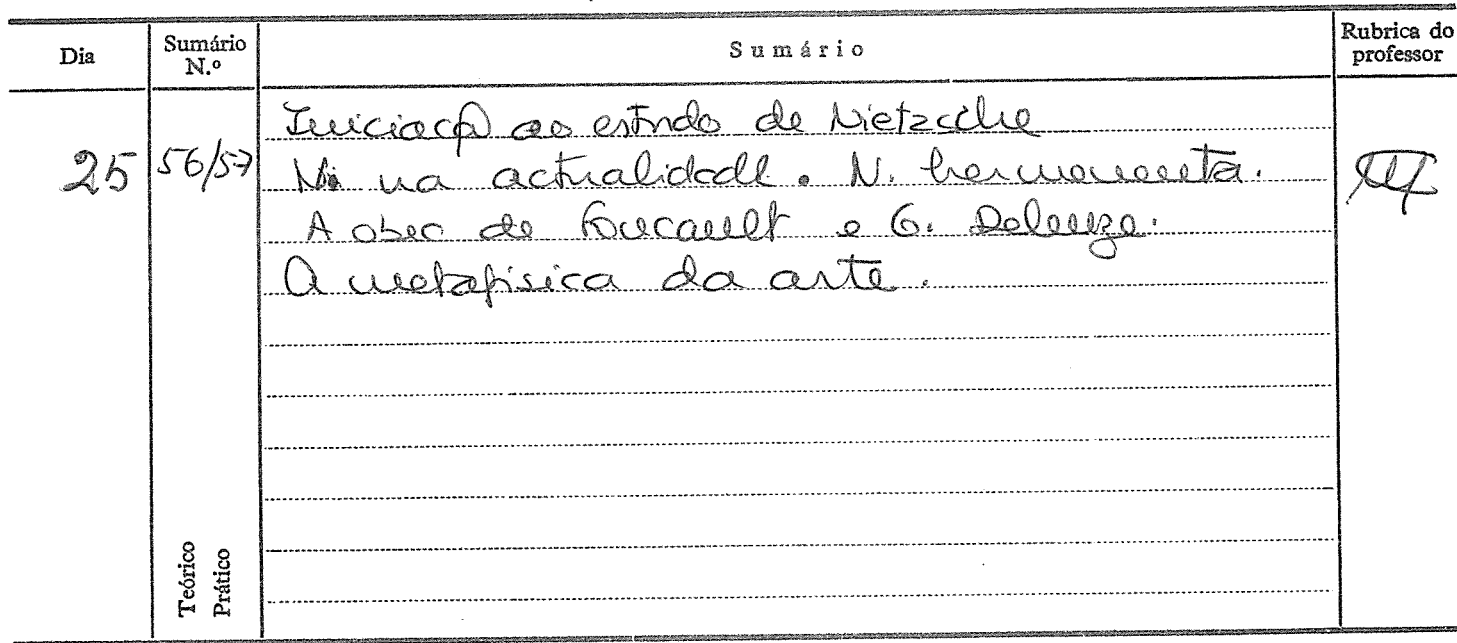 Dia
Sumário N.º
Sumário
Rubrica do professor
25
56/57
Iniciação ao estudo de Nietzsche
N. na actualidade. N. hermeneuta.
A obra de Foucault e G. Deleuze.
A metafísica da arte.
Teórico
Prático